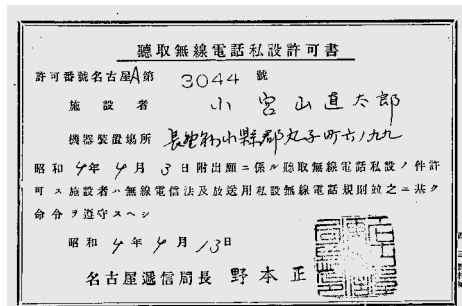 聽取無線電話私設許可書
許可番號名古屋A第 3044 號
施設者 小宮山直太郎
機器裝置場所 長野縣小縣郡丸子町六ノ九九
昭和 4年 4月 3日附出願ニ係ル聽取無線電話私設ノ件許
可ス施設者ハ無線電信法及放送用私設無線電話規則竝之ニ基ク
命令ヲ遵守スヘシ
昭和 4年 4月 13日
名古屋遞信局長 野本正